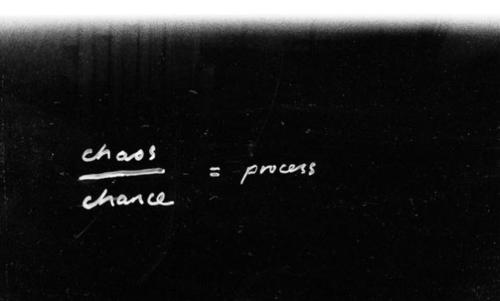 chaos
chance = process